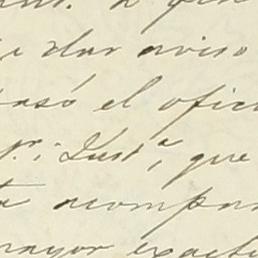 e dar aviso
pasó el ofic
p.r; Just.a, que
a acompañ
mayor exacti